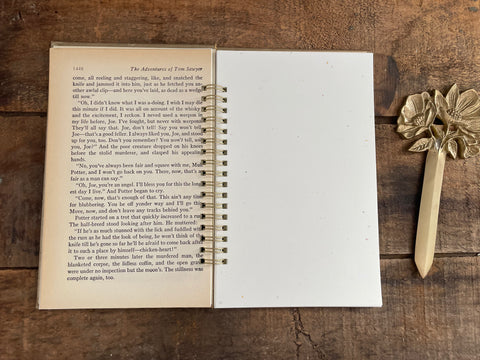 1420 The Adventures of Tom Sawyer
come, all reeling and staggering, like, and snatched the
knife and jammed it into him, just as he fetched you an-
other awful clip—and here you've laid, as dead as a wedge
till now."
"Oh, I didn't know what I was a-doing. I wish I may die
this minute if I did. It was all on account of the whisky
and the excitement, I reckon. I never used a weepon in
my life before, Joe. I've fought, but never with weepons.
They'll all say that. Joe, don't tell! Say you won't tell,
Joe—that's a good feller. I always liked you, Joe, and stood
up for you, too. Don't you remember? You won't tell, will
you, Joe?" And the poor creature dropped on his knees
before the stolid murderer, and clasped his appealing
hands.
"No, you've always been fair and square with me, Muff
Potter, and I won't go back on you. There, now, that's as
fair as a man can say."
"Oh, Joe, you're an angel. I'll bless you for this the long-
est day I live." And Potter began to cry.
"Come, now, that's enough of that. This ain't any time
for blubbering. You be off yonder way and I'll go this.
Move, now, and don't leave any tracks behind you."
Potter started on a trot that quickly increased to a run.
The half-breed stood looking after him. He muttered:
"If he's as much stunned with the lick and fuddled with
the rum as he had the look of being, he won't think of the
knife till he's gone so far he'll be afraid to come back after
it to such a place by himself—chicken-heart!"
Two or three minutes later the murdered man, the
blanketed corpse, the lidless coffin, and the open grave
were under no inspection but the moon's. The stillness was
complete again, too.